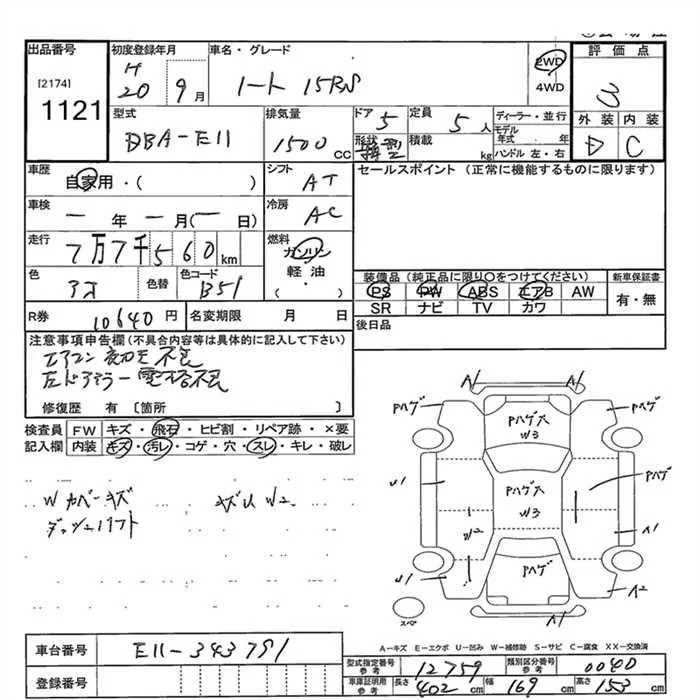 出品番号
[2174]
1121
初度登録年月
H
20 9月
車名・グレード
ノート 15RS
2WD
4WD
評価点
3
外装 内装
D C
型式
DBA-E11
排気量
1500 CC
ドア
5
形状
定員
5人
積載
kg
ディーラー・並行
モデル年式 年
ハンドル 左・右
車歴
自家用・( )
シフト
AT
セールスポイント (正常に機能するものに限ります)
車検
一年一月(一日)
冷房
AC
走行
7万7千560km
燃料
ガソリン
軽油・
( )
色
アオ
色替
色コード
B51
装備品 (純正品に限り○をつけてください)
PS PW ABS エアB AW
SR ナビ TV カワ
新車保証書
有・無
R券
10640円
名変期限 月 日
後日品
注意事項申告欄 (不具合内容等は具体的に記入して下さい)
エアコン
不良
左ドアミラー電格不良
修復歴 有 [箇所 ]
検査員 FW キズ・飛石・ヒビ割・リペア跡・×要
記入欄 内装 キズ・汚レ・コゲ・穴・スレ・キレ・破レ
W カバーキズ
W2
ダッシュリフト
A1
Pハゲ
Pハゲ大
W3
Pハゲ
U1
Pハゲ大
W3
Pハゲ
W2
A1
U1
Pハゲ
A2
スペ
A1
A-キズ E-エクボ U-凹み W-補修跡 S-サビ C-腐食 XX-交換済
車台番号
E11-343791
登録番号
型式指定番号
参考
12759
類別区分番号
参考
0040
車庫証明用
参考
長さ 402cm
幅 169cm
高さ 153cm